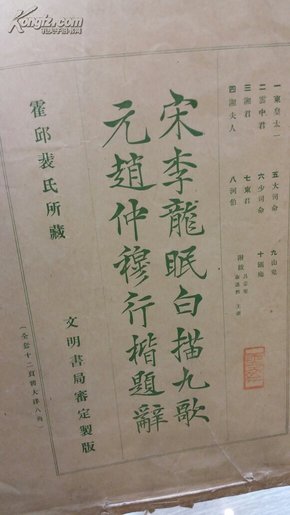 Kongfz.com
孔夫子旧书网
一東皇太一
二雲中君
三湘君
四湘夫人
五大司命
六少司命
七東君
八河伯
九山鬼
十國殤
宋李龍眠白描九歌
元趙仲穆行楷題辭
霍邱裴氏所藏
文明書局審定製版